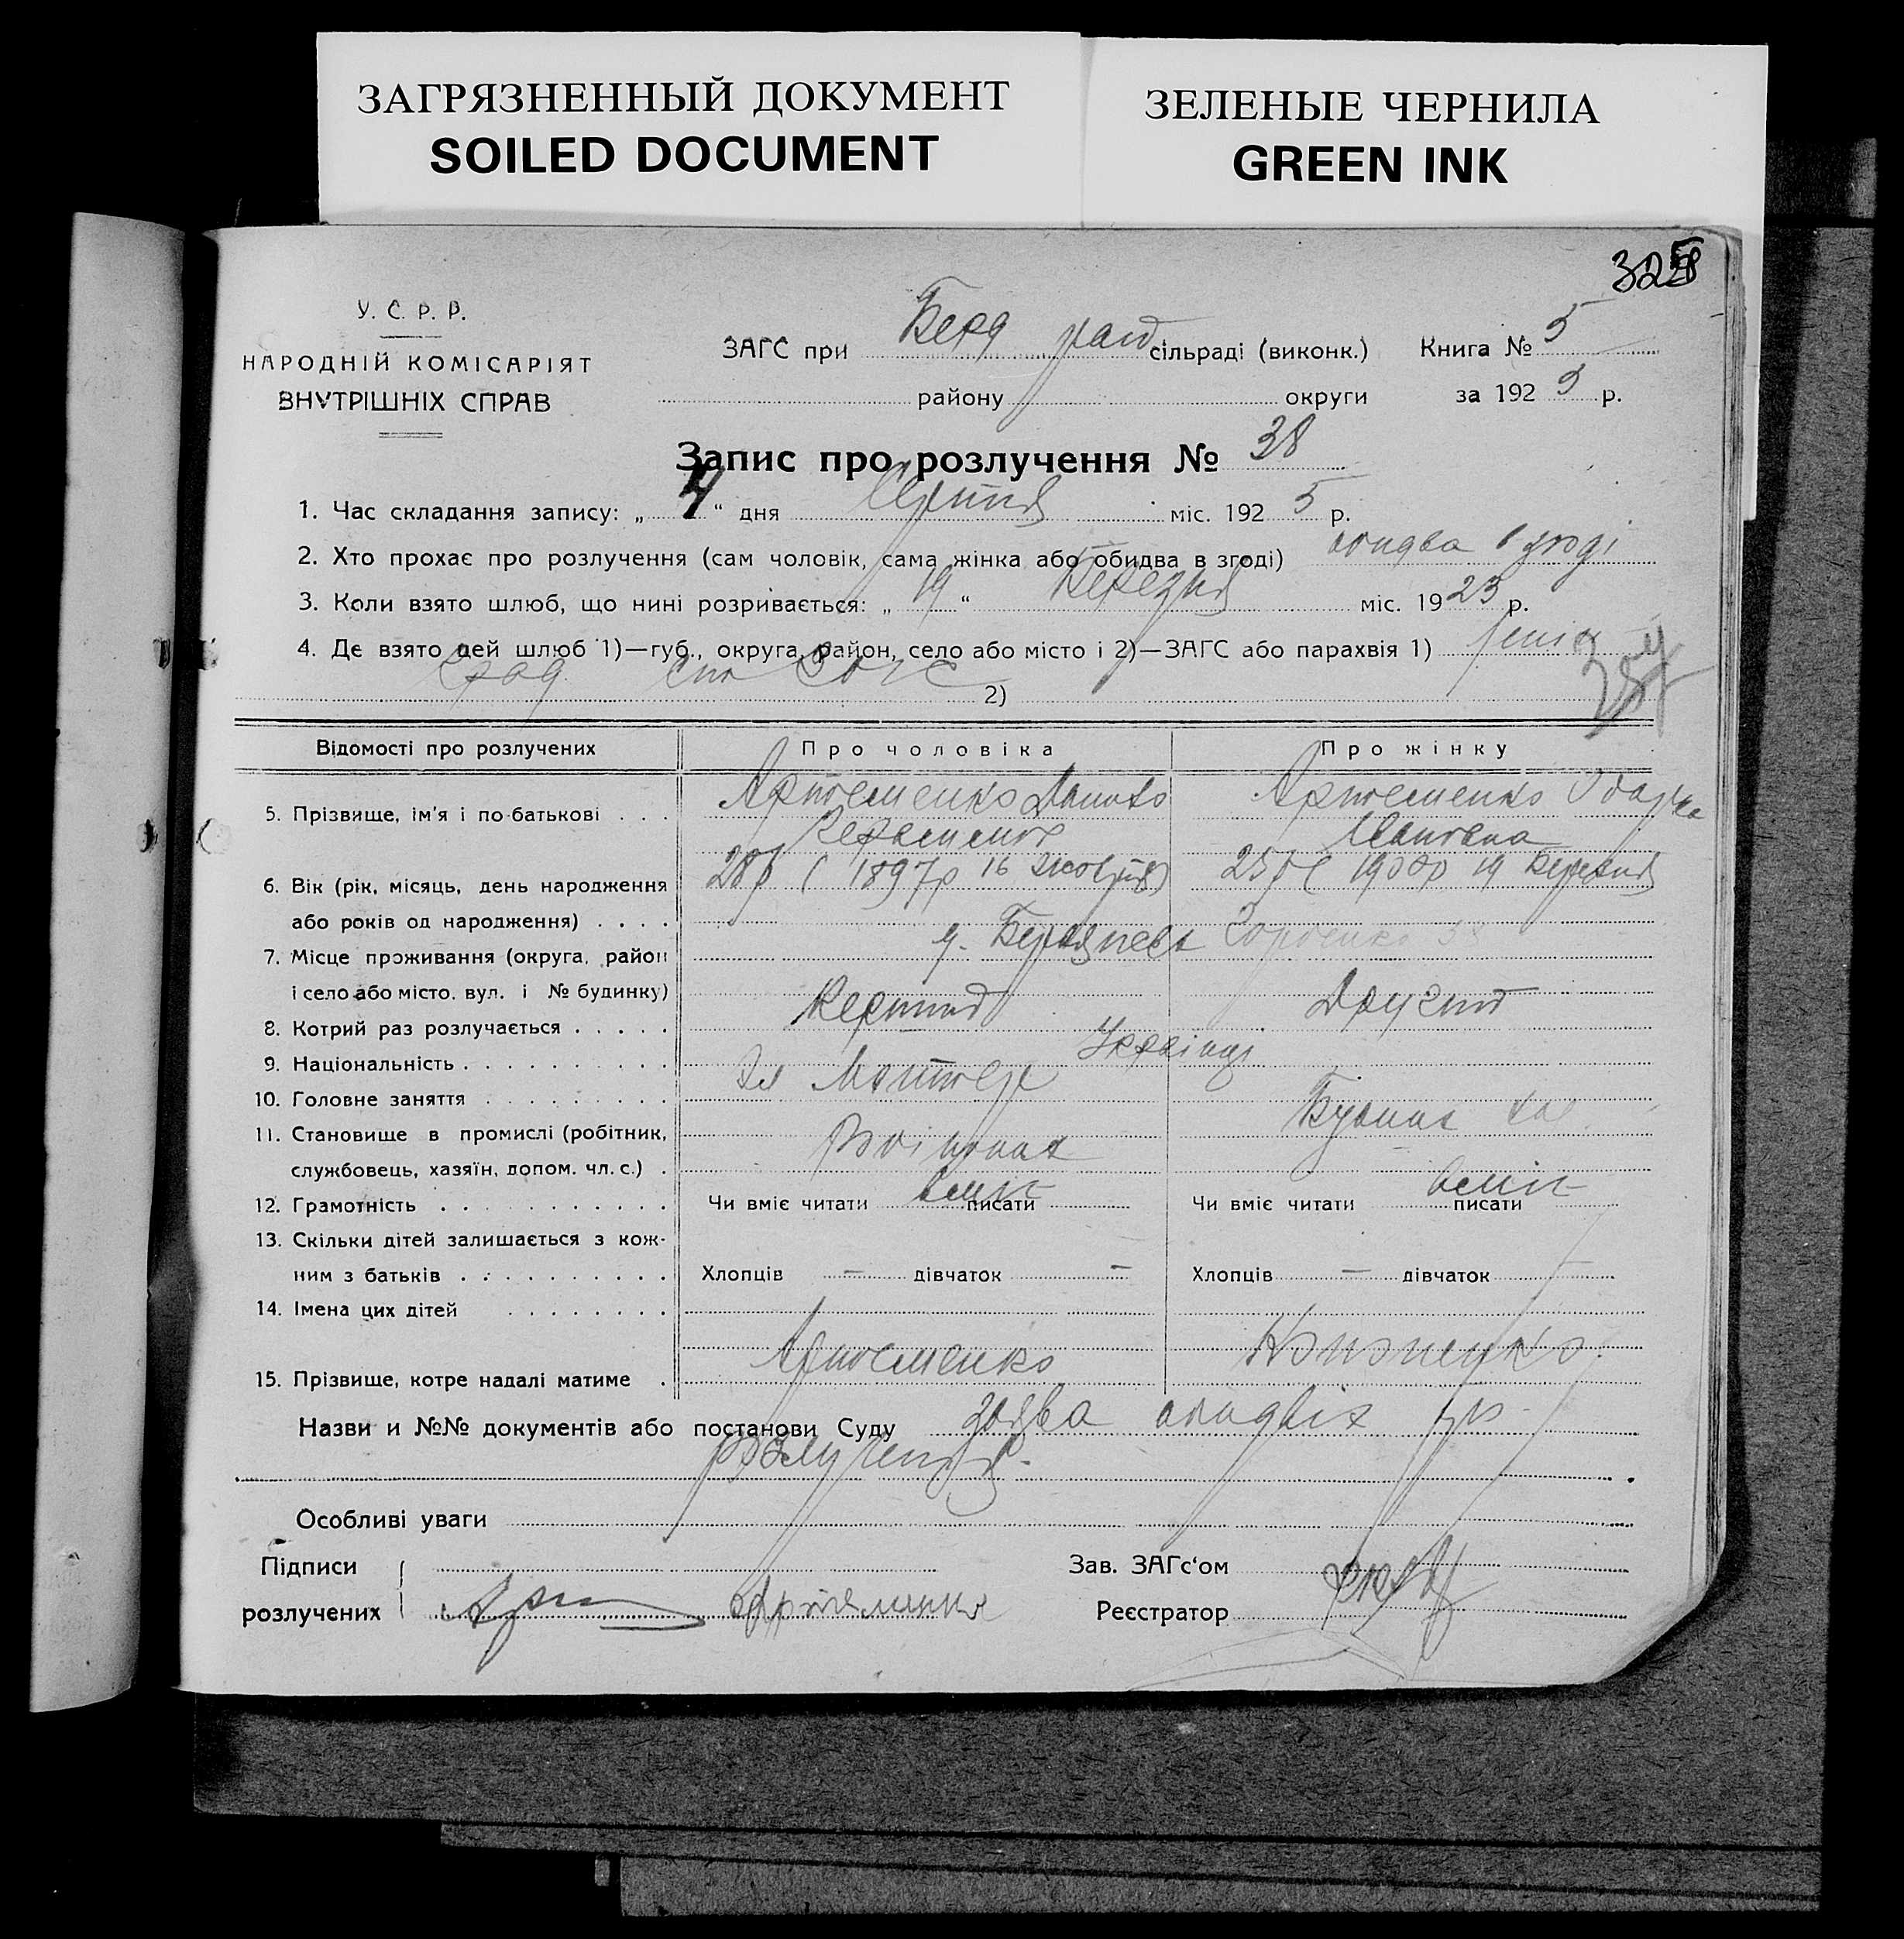 ЗАГРЯЗНЕННЫЙ ДОКУМЕНТ
SOILED DOCUMENT
ЗЕЛЕНЫЕ ЧЕРНИЛА
GREEN INK
У. С. Р. Р.
НАРОДНІЙ КОМІСАРІЯТ
ВНУТРІШНІХ СПРАВ
ЗАГС при Берд рай сільраді (виконк.) Книга № 5
району округи за 192 5 р.
Запис про розлучення № 38
1. Час складання запису: „ 4 “ дня Серпня міс. 192 5 р.
2. Хто прохає про розлучення (сам чоловік, сама жінка або обидва в згоді) обидва в згоді
3. Коли взято шлюб, що нині розривається: „ 19 “ Березня міс. 19 23 р.
4. Де взято цей шлюб 1)—губ., округа, район, село або місто і 2)—ЗАГС або парахвія 1)
2)
Відомості про розлучених Про чоловіка Про жінку
5. Прізвище, ім'я і по-батькові . . . Артеменко Данило Артеменко Одарка
Івановна
6. Вік (рік, місяць, день народження 28 р ( 1897 р 16 жовтня) 25 р ( 1900 р 19 Березня
або років од народження) . . . .
7. Місце проживання (округа, район
і село або місто, вул. і № будинку)
8. Котрий раз розлучається . . . . . Першый Другий
9. Національність . . . . . . . . . . Українці
10. Головне заняття . . . . . . . . . Ел Монтер
11. Становище в промислі (робітник,
службовець, хазяїн, допом. чл. с.) .
12. Грамотність . . . . . . . . . . . Чи вміє читати вміє писати Чи вміє читати вміє писати
13. Скільки дітей залишається з кож-
ним з батьків . . . . . . . . . . Хлопців — дівчаток — Хлопців — дівчаток —
14. Імена цих дітей . . . . . . . .
15. Прізвище, котре надалі матиме . Артеменко Кононенко
Назви и №№ документів або постанови Суду заява обидвіх про
розлучення.
Особливі уваги
Підписи
розлучених
Зав. ЗАГс'ом
Реєстратор